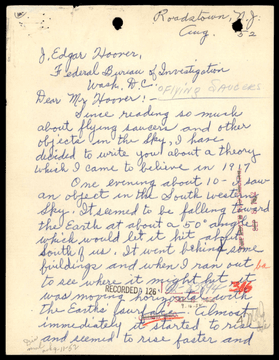 Roadstown, N.J.
Aug. 52
J, Edgar Hoover,
Federal Bureau of Investigation
Wash, D.C.
"FLYING SAUCERS
Dear Mr Hoover:
Since reading so much
about flying saucers and other
objects in the sky, I have
decided to write you about a theory
which I came to believe in 1917
One evening about 10- I saw
an object in the South western
sky. It seemed to be falling toward
the Earth at about a 50° angle
which would let it hit about
South of us. It went behind some
buildings and when I ran out
to see where it might hit it
RECORDED 126
was moving horizontal with
the Earths' surface. Almost
immediately it started to rise
and seemed to rise faster and